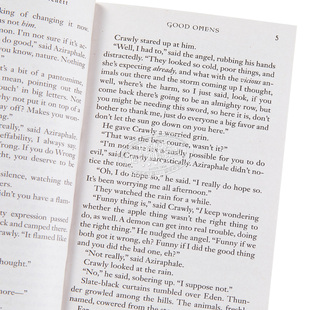 king of changing it now,
us him.
m not sure if it's ac-
." said Aziraphale.
you know, nature. Nothing
t's a bit of a pantomime,
mean, pointing out the
ouch' in big letters. Not
hy not put it on top of a
ay off? Makes you won-
."
ht, really," said Aziraphale.
effability, I always say.
ight. If you do Wrong
t, you deserve to be
silence, watching the
owers.
ty expression passed
ck and camped there.
Crawly. "It flamed like
thought."
more—"
GOOD OMENS 5
Crawly stared up at him.
"Well, I had to," said the angel, rubbing his hands
distractedly. "They looked so cold, poor things, and
she's expecting already, and what with the vicious an-
imals out there and the storm coming up I thought,
well, where's the harm, so I just said, look, if you
come back there's going to be an almighty row, but
you might be needing this sword, so here it is, don't
bother to thank me, just do everyone a big favor and
don't let the sun go down on you here."
He gave Crawly a worried grin.
"That was the best course, wasn't it?"
"I'm not sure it's actually possible for you to do
evil," said Crawly sarcastically. Aziraphale didn't no-
tice the tone.
"Oh, I do hope so," he said. "I really do hope so.
It's been worrying me all afternoon."
They watched the rain for a while.
"Funny thing is," said Crawly, "I keep wondering
whether the apple thing wasn't the right thing to
do, as well. A demon can get into real trouble, doing
the right thing." He nudged the angel. "Funny if we
both got it wrong, eh? Funny if I did the good thing
and you did the bad one, eh?"
"Not really," said Aziraphale.
Crawly looked at the rain.
"No," he said, sobering up. "I suppose not."
Slate-black curtains tumbled over Eden. Thun-
der growled among the hills. The animals, freshly
named, cowered from the storm.